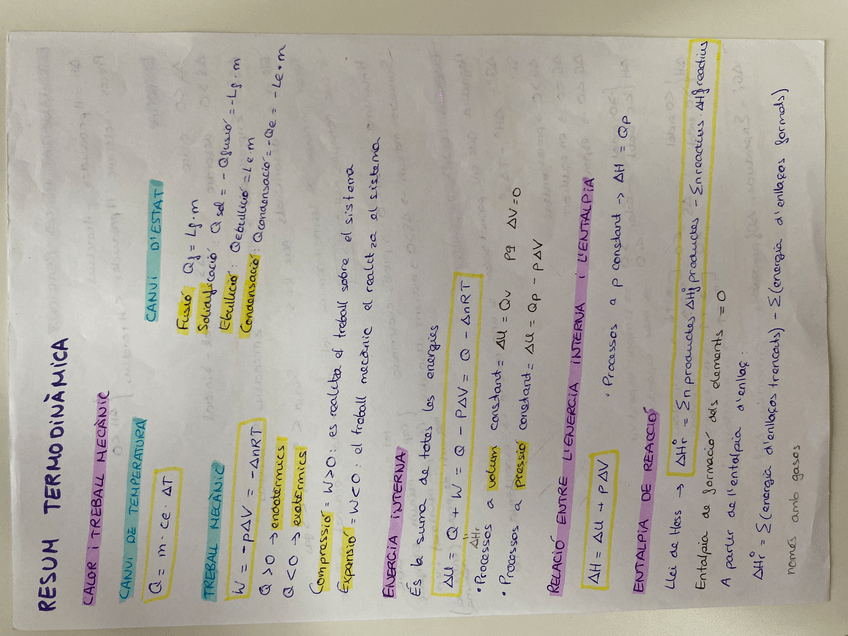 RESUM TERMODINÀMICA
CALOR I TREBALL MECÀNIC
CANVI DE TEMPERATURA
Q = m · ce · ΔT
CANVI D'ESTAT
Fusió Qf = Lf · m
Solidificació Qsol = -Qfusió = -Lf · m
Ebullició: Qebullició = Le · m
Condensació: Qcondensació = -Qe = -Le · m
TREBALL MECÀNIC
W = -pΔV = -ΔnRT
Q > 0 → endotèrmics
Q < 0 → exotèrmics
Compressió = W > 0: es realitza el treball sobre el sistema
Expansió = W < 0: el treball mecànic el realitza el sistema
ENERGIA INTERNA
És la suma de totes les energies
ΔU = Q + W = Q - PΔV = Q - ΔnRT
ΔHr
· Processos a volum constant = ΔU = Qv pq ΔV = 0
· Processos a pressió constant = ΔU = Qp - pΔV
RELACIÓ ENTRE L'ENERGIA INTERNA I L'ENTALPIA
ΔH = ΔU + PΔV
· Processos a p constant → ΔH = Qp
ENTALPIA DE REACCIÓ
Llei de Hess → ΔHr° = Σn productes ΔHf° productes - Σn reactius · ΔHf reactius
Entalpia de formació dels elements = 0
A partir de l'entalpia d'enllaç:
ΔHr° = Σ(energia d'enllaços trencats) - Σ(energia d'enllaços formats)
només amb gasos